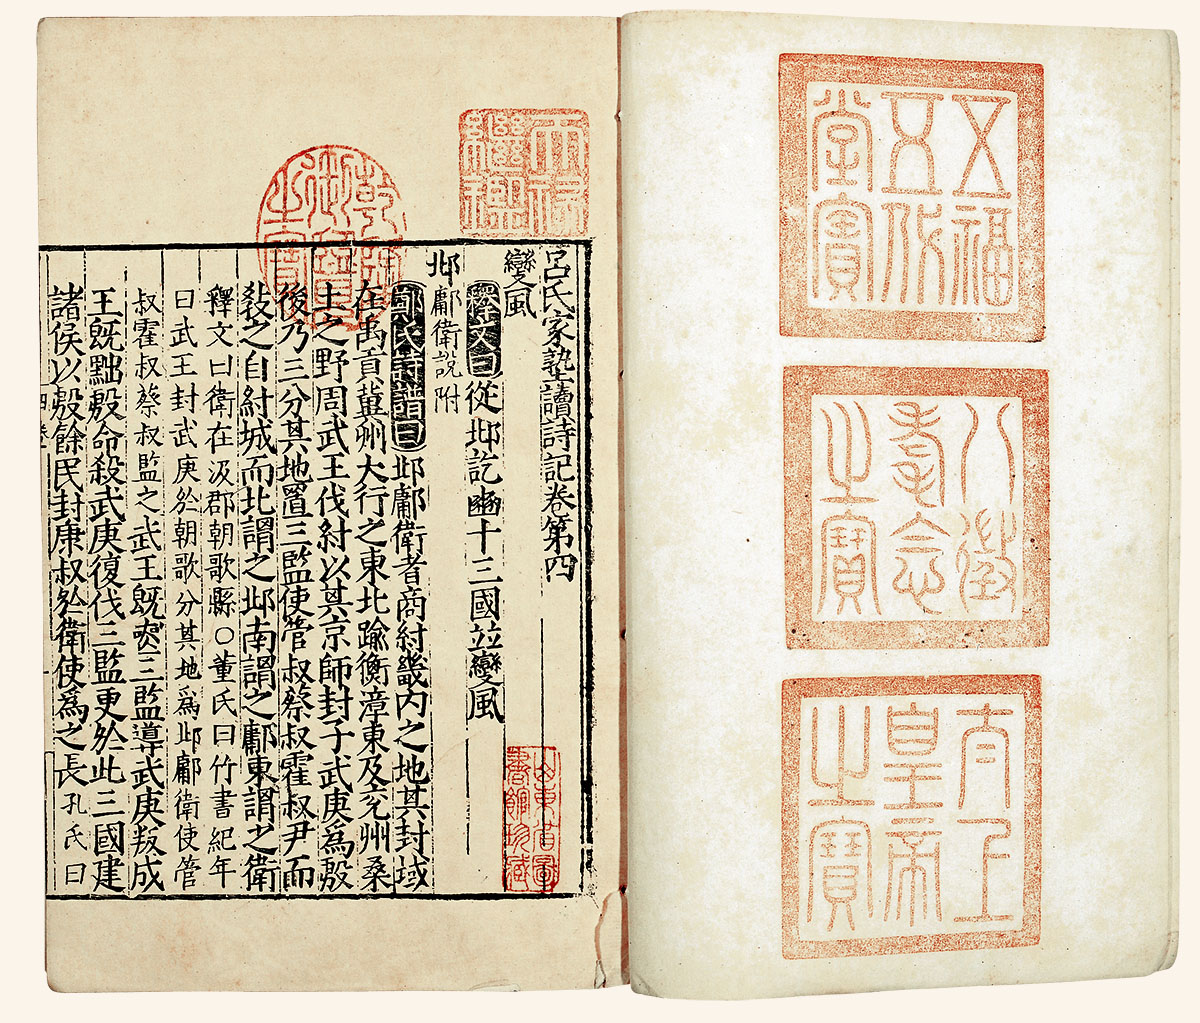 五福
五代
堂寶
八徵
耄念
之寶
太上
皇帝
之寶
天祿
繼鑑
乾隆
御覽
之寶
呂氏家塾讀詩記卷第四
變風
釋文曰從邶訖豳十三國並變風
邶鄘衛說附
鄭氏詩譜曰邶鄘衛者商紂畿內之地其封域
在禹貢冀州大行之東北踰衡漳東及兖州桑
土之野周武王伐紂以其京師封子武庚為殷
後乃三分其地置三監使管叔蔡叔霍叔尹而
敎之自紂城而北謂之邶南謂之鄘東謂之衛
釋文曰衛在汲郡朝歌縣○董氏曰竹書紀年
曰武王封武庚於朝歌分其地爲邶鄘衛使管
叔霍叔蔡叔監之武王旣喪三監導武庚叛成
王旣黜殷命殺武庚復伐三監更於此三國建
諸侯以殷餘民封康叔於衛使爲之長孔氏曰
山東省圖
書館珍藏